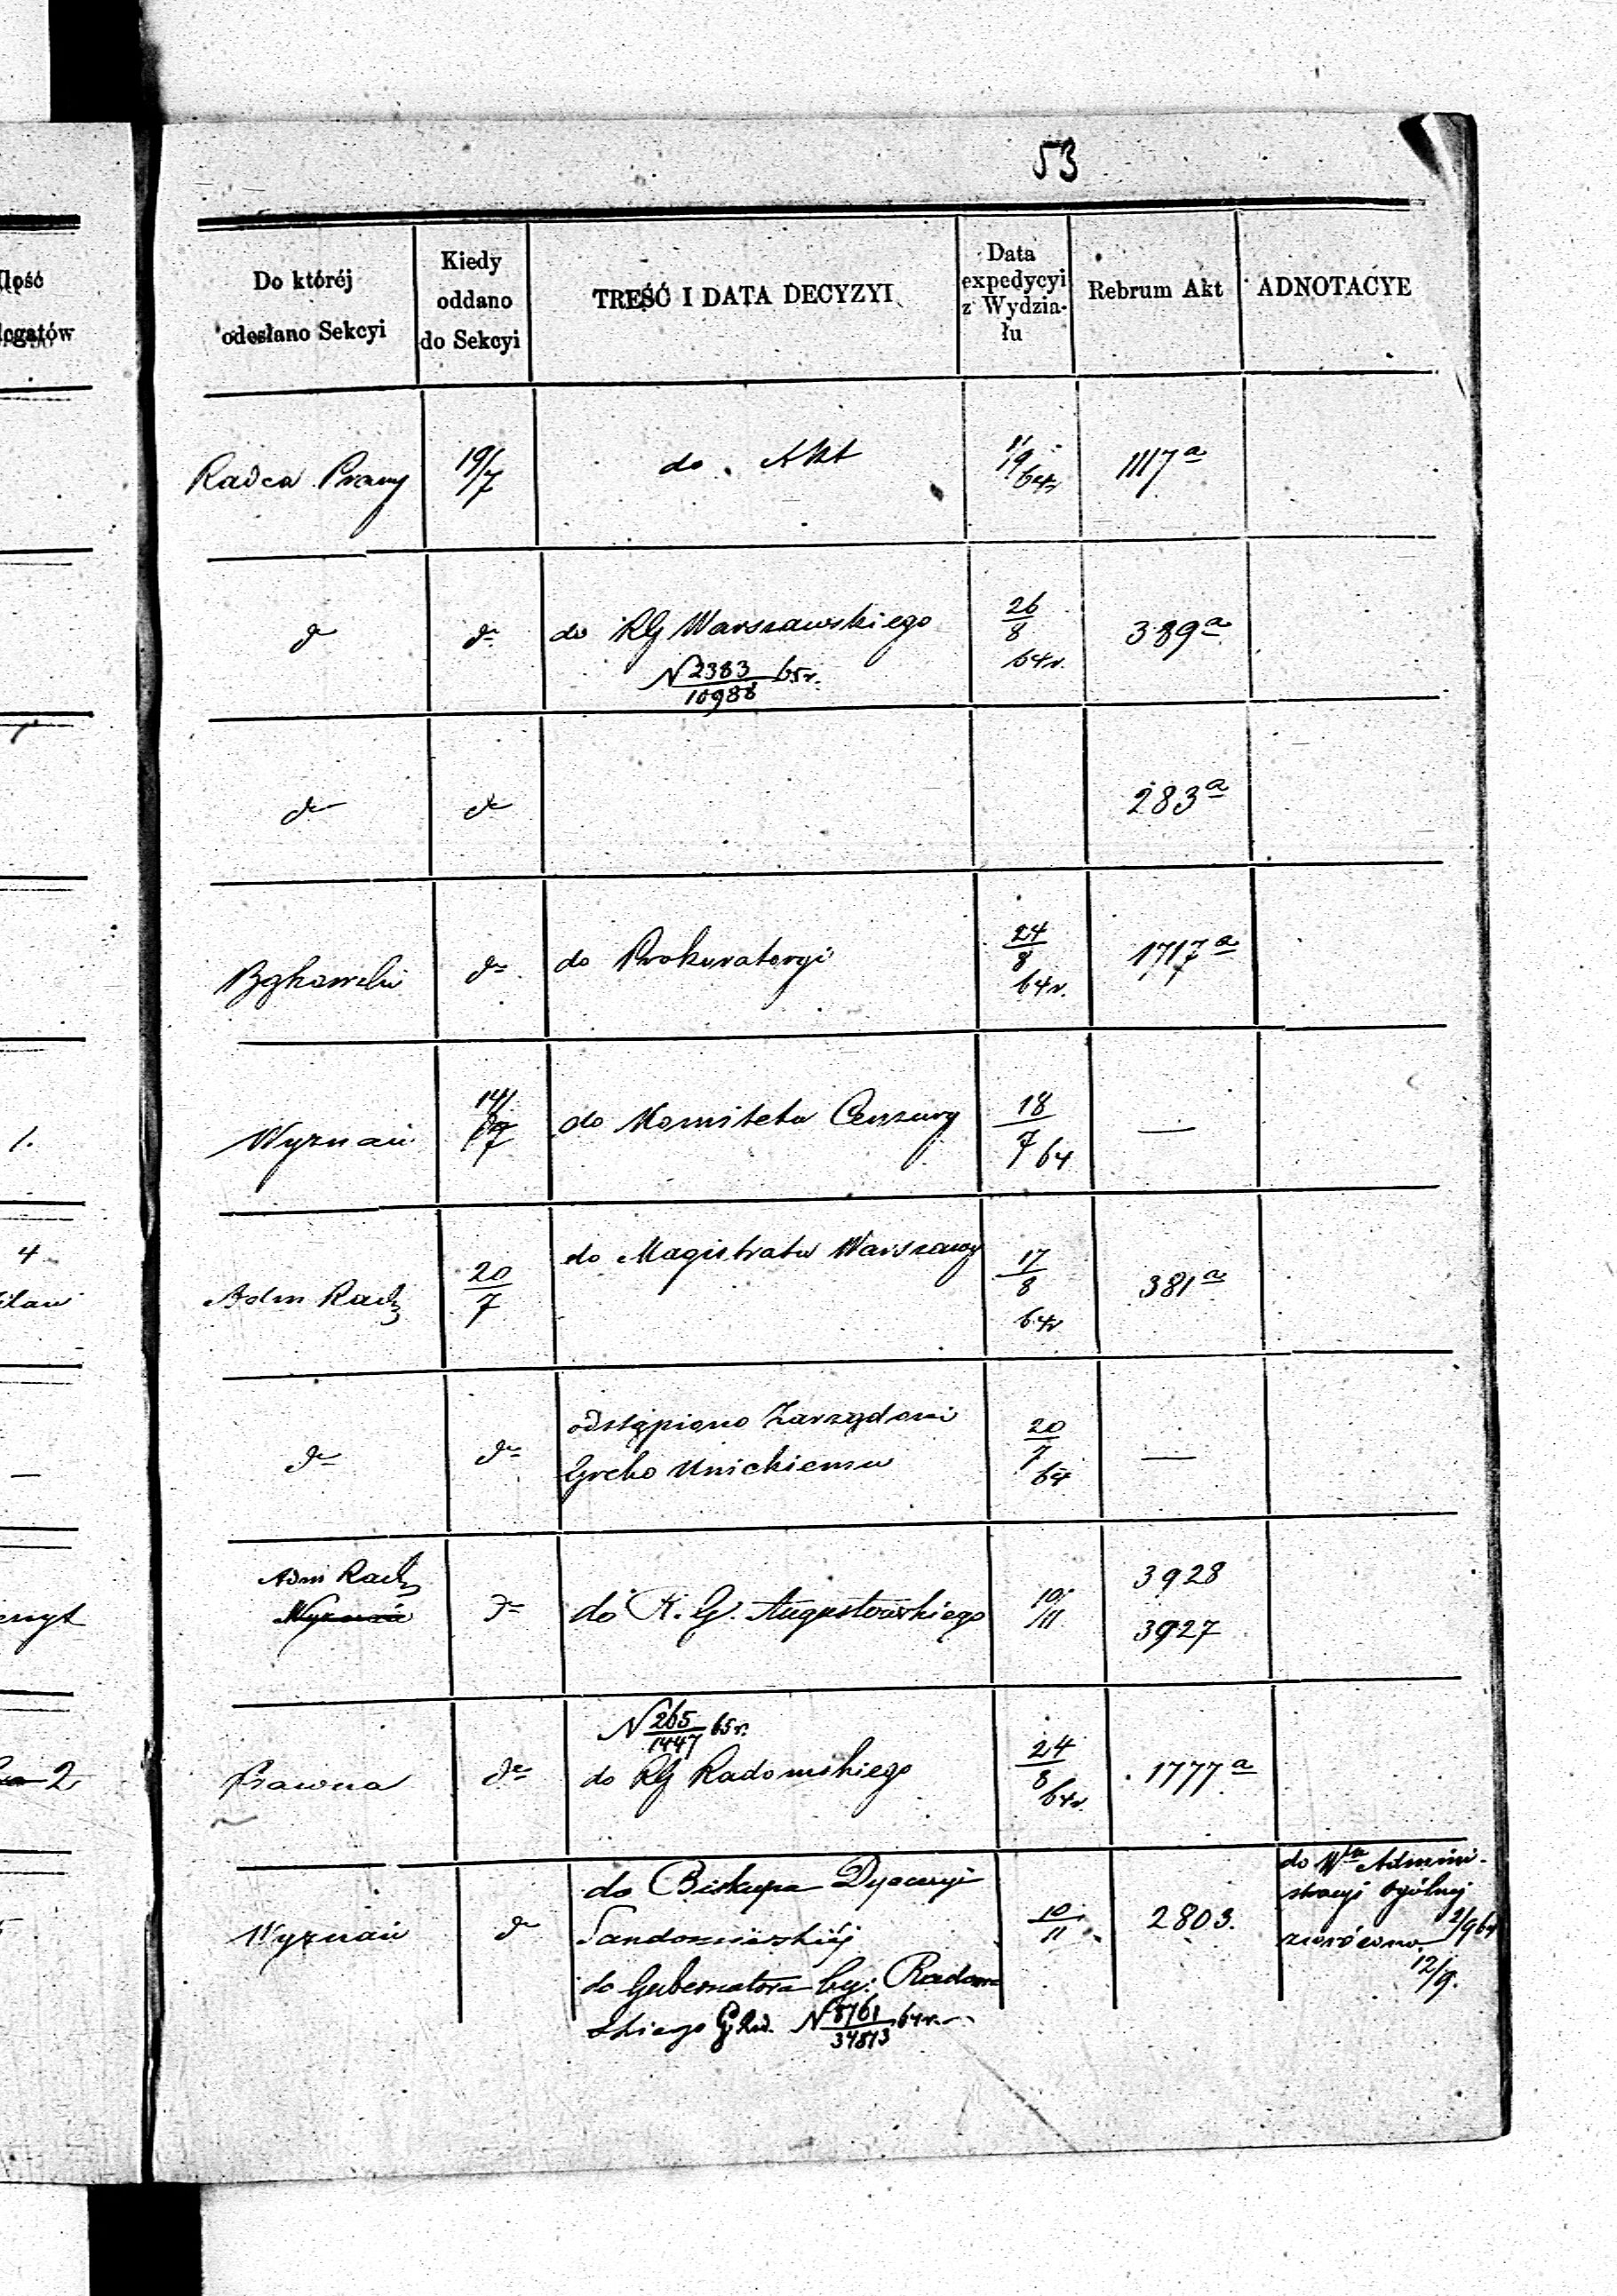 53
Ilość
legatów
Do któréj
odesłano Sekcyi
Kiedy
oddano
do Sekcyi
TREŚĆ I DATA DECYZYI
Data
expedycyi
z Wydzia-
łu
Rebrum Akt
ADNOTACYE
Radca Prawny
19/7
do Akt
19
1117 a
do
do
do RG Warszawskiego
N 2383/10988 65 r.
26/8
64 r.
389 a
do
do
283 a
do
do Prokuratoryi
24/8
64 r.
1717 a
1.
Wyznań
14/7
do Komitetu Cenzury
18/7 64
—
4
Adm Rach
20/7
do Magistratu Warszawy
17/8
64 r
381 a
—
do
do
odstąpiono Zarządowi
Greko Unickiemu
20/7
64
—
Adm Rach
Wyznań
do
do R. G. Augustowskiego
10/11
3928
3927
2
Prawna
do
N 265/1447 65 r.
do RG Radomskiego
24/8
64 r
1777 a
Wyznań
do
do Biskupa Dyecezyi
Sandomirskiéj
do Gubernatora Cy: Radom
skiego N 8761/34813 64 r.
10/11
2803.
do Włu Admini-
stracyi Ogólnej
2/9 64
zwrócono
12/9.